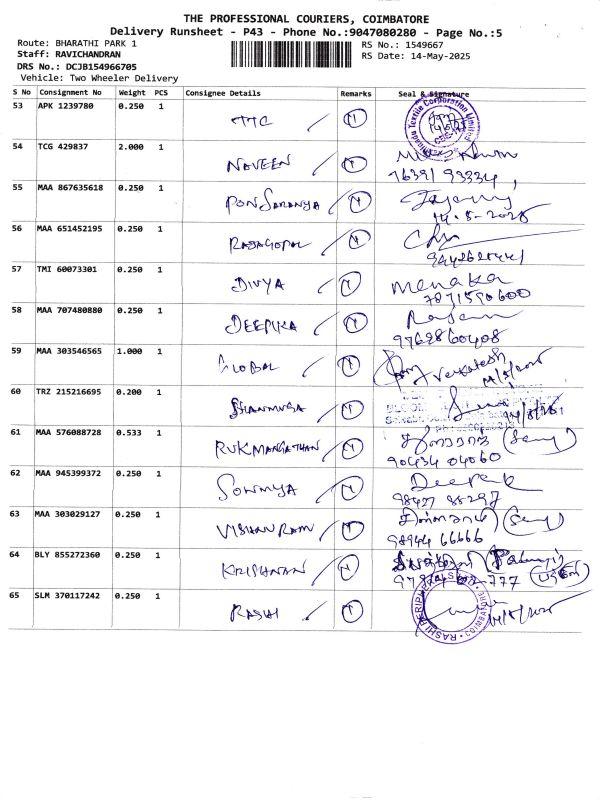 THE PROFESSIONAL COURIERS, COIMBATORE
Delivery Runsheet - P43 - Phone No.:9047080280 - Page No.:5
Route: BHARATHI PARK 1
RS No.: 1549667
Staff: RAVICHANDRAN
RS Date: 14-May-2025
DRS No.: DCJB154966705
Vehicle: Two Wheeler Delivery
S No Consignment No Weight PCS Consignee Details Remarks Seal & Signature
53 APK 1239780 0.250 1 TTC
54 TCG 429837 2.000 1 NAVEEN
76391 93334
55 MAA 867635618 0.250 1 PON SARANYA
14-5-2025
56 MAA 651452195 0.250 1 RAJAGOPAL
57 TMI 60073301 0.250 1 DIVYA Menaka
7871590600
58 MAA 707480880 0.250 1 DEEPIKA Rajam
9762860408
59 MAA 303546565 1.000 1 GLOBAL Venkatesh
14/5/2025
60 TRZ 215216695 0.200 1 SHANMUGA
61 MAA 576088728 0.533 1 RUKMANGATHAN
90434 04060
62 MAA 945399372 0.250 1 SOWMYA Deepak
98427 88297
63 MAA 303029127 0.250 1 VISHAN RAM
98944 66666
64 BLY 855272360 0.250 1 KRISHNAN
65 SLM 370117242 0.250 1 RASHI
14/5/2025